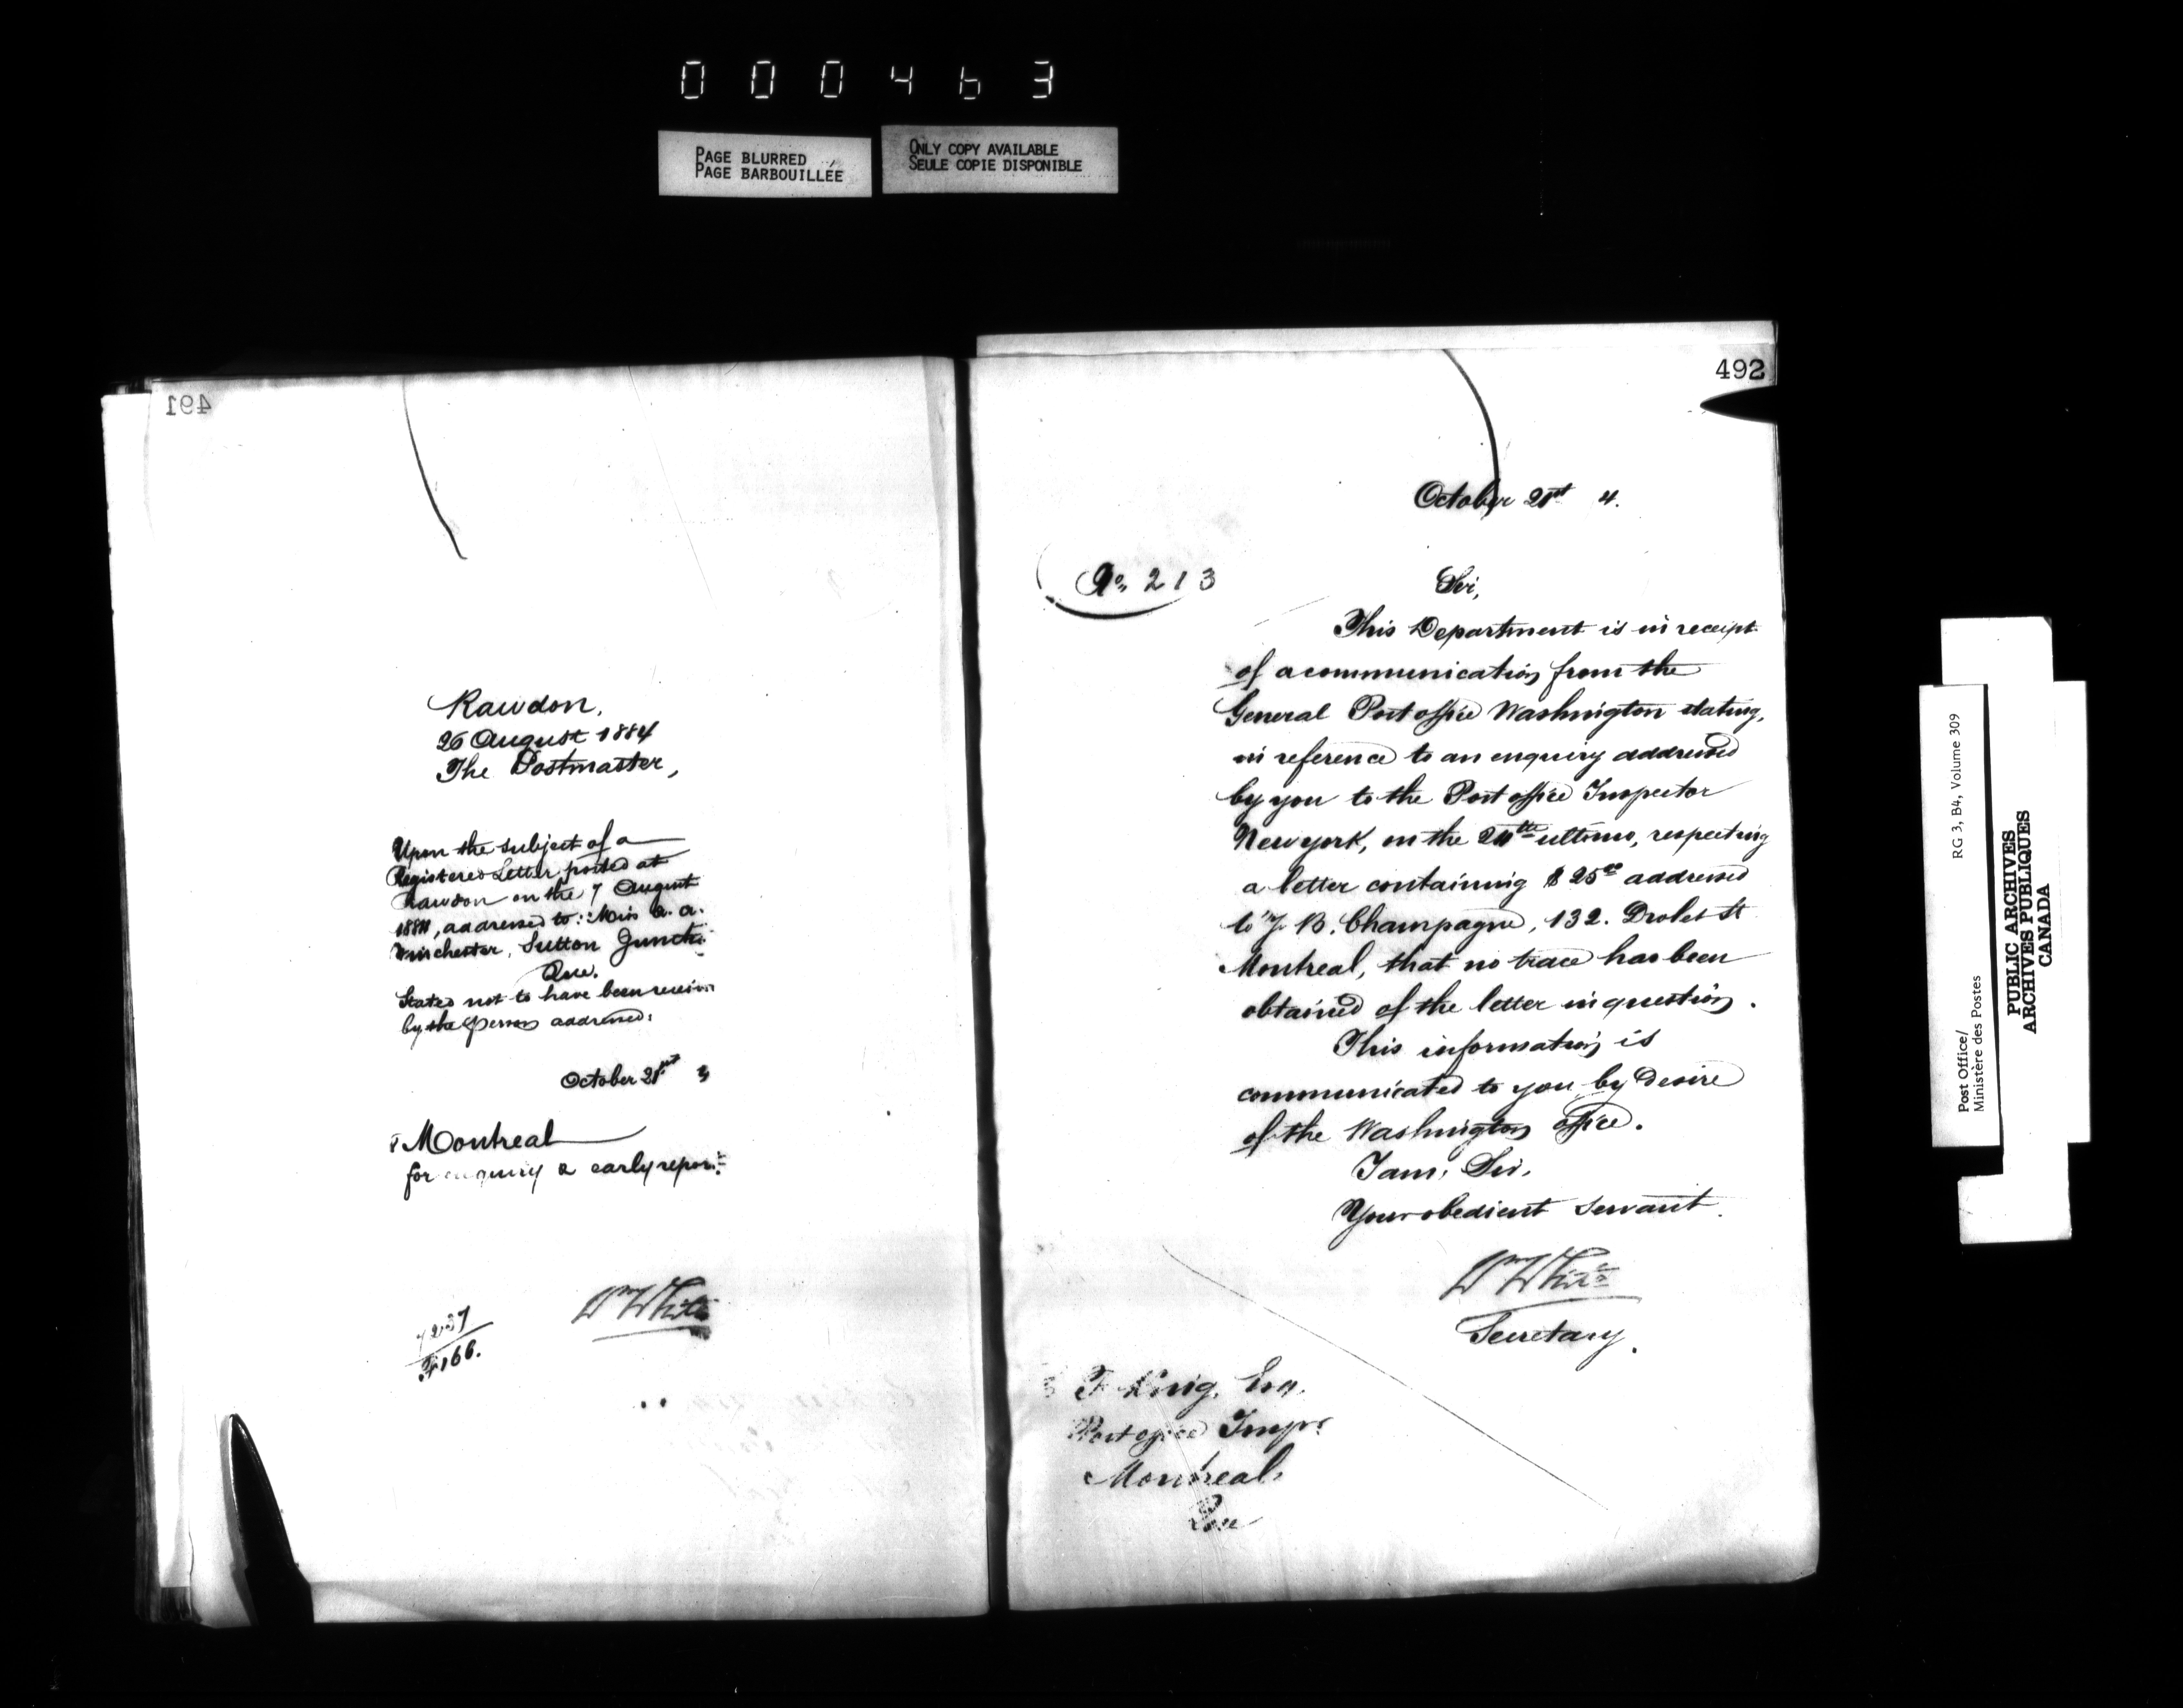 000463
PAGE BLURRED
PAGE BARBOUILLÉE
ONLY COPY AVAILABLE
SEULE COPIE DISPONIBLE
491
Rawdon,
26 August 1884
The Postmaster,
Upon the subject of a
Registered Letter posted at
Rawdon on the 7 August
1884, addressed to: Miss A. A.
Winchester, Sutton Junct:
Que.
Stated not to have been receiv
by the person addressed:
October 21st
Montreal
for enquiry & early report
WmWhite
166.
492
October 21st 4.
No 213
Sir,
This Department is in receipt
of a communication from the
General Post office Washington stating,
in reference to an enquiry addressed
by you to the Post office Inspector
New York, on the ultimo, respecting
a letter containing $25.00 addressed
to J. B. Champagne, 132. Drolet St
Montreal, that no trace has been
obtained of the letter in question.
This information is
communicated to you by desire
of the Washington office.
I am, Sir,
Your obedient servant.
WmWhite
Secretary.
F King, Esq.
Post office Inspr
Montreal,
Que
Post Office/
Ministère des Postes
RG 3, B4, Volume 309
PUBLIC ARCHIVES
ARCHIVES PUBLIQUES
CANADA